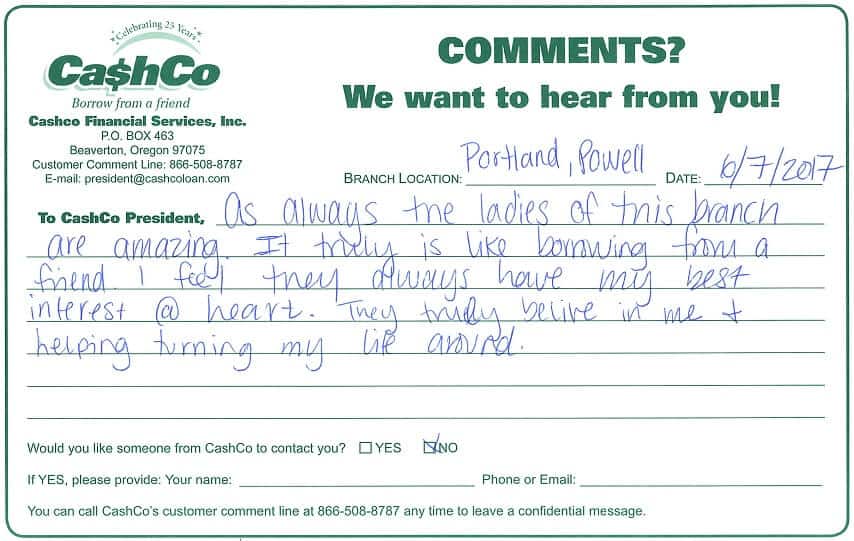 Celebrating 25 Years
Ca$hCo
Borrow from a friend
Cashco Financial Services, Inc.
P.O. BOX 463
Beaverton, Oregon 97075
Customer Comment Line: 866-508-8787
E-mail: president@cashcoloan.com
COMMENTS?
We want to hear from you!
BRANCH LOCATION: Portland, Powell DATE: 6/7/2017
To CashCo President, As always the ladies of this branch
are amazing. It truly is like borrowing from a
friend. I feel they always have my best
interest @ heart. They truly belive in me +
helping turning my life around.
Would you like someone from CashCo to contact you? YES NO
If YES, please provide: Your name: Phone or Email:
You can call CashCo's customer comment line at 866-508-8787 any time to leave a confidential message.